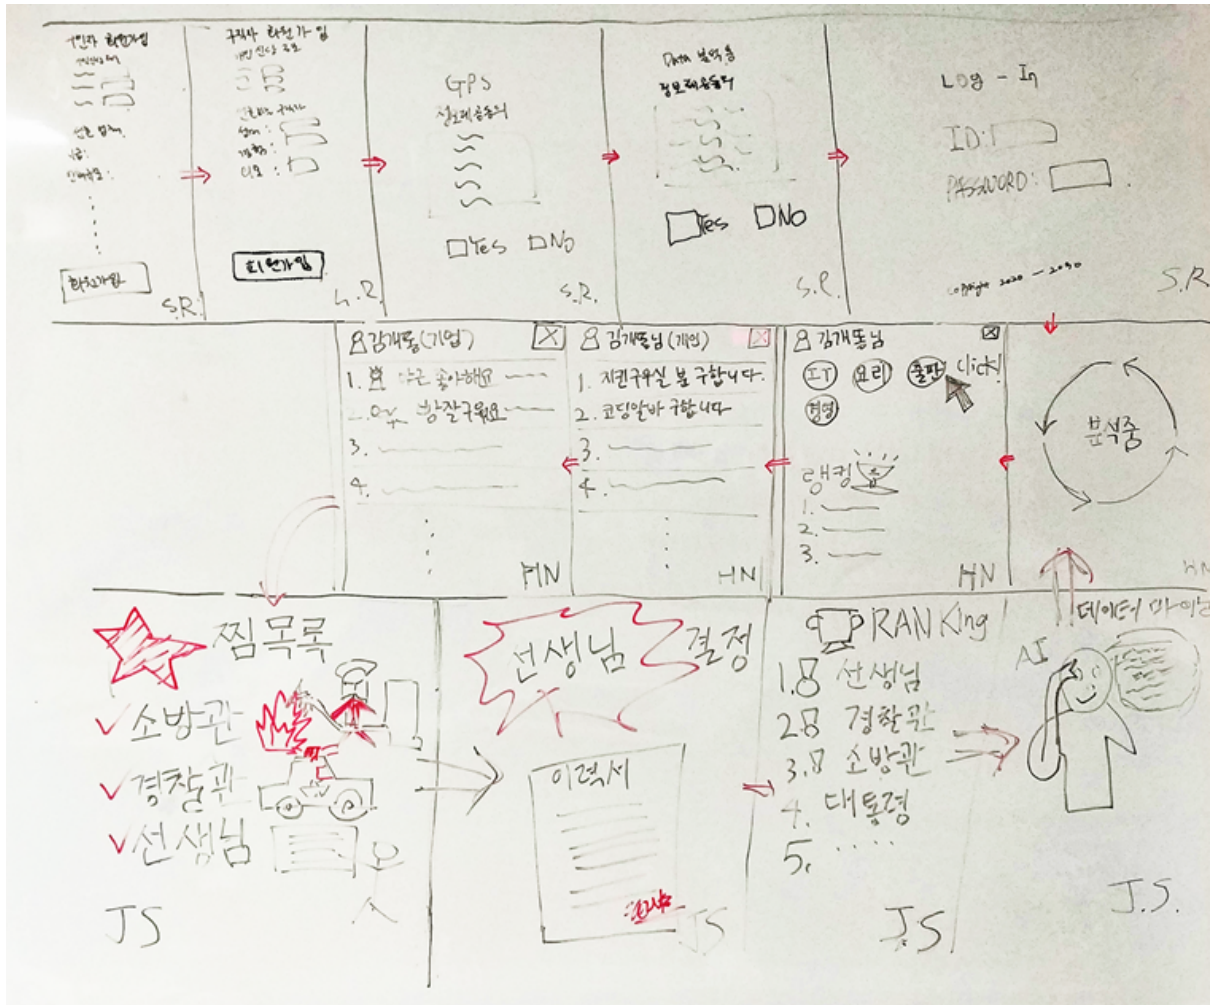 구인자 회원가입
시급:
회원가입
S.R.
구직자 회원가입
개인신상정보
경험:
회원가입
S.R.
GPS
정보제공동의
Yes NO
S.R.
Data 분석용
정보제공동의
Yes NO
S.R.
Log - In
ID:
PASSWORD:
Copyright 2020 - 2030
S.R
김개똥(기업) X
1. 야근 좋아해요
2.
3.
4.
HN
김개똥님(개인) X
1. 치킨구우실 분 구합니다.
2. 코딩알바 구합니다
3.
4.
HN
김개똥님 X
IT 요리 출판 click!
경영
랭킹
1.
2.
3.
HN
분석중
HN
찜목록
소방관
경찰관
선생님
JS
선생님 결정
이력서
JS
RANKing
1. 선생님
2. 경찰관
3. 소방관
4. 대통령
5. ....
J.S
데이터 마이닝
AI
J.S.